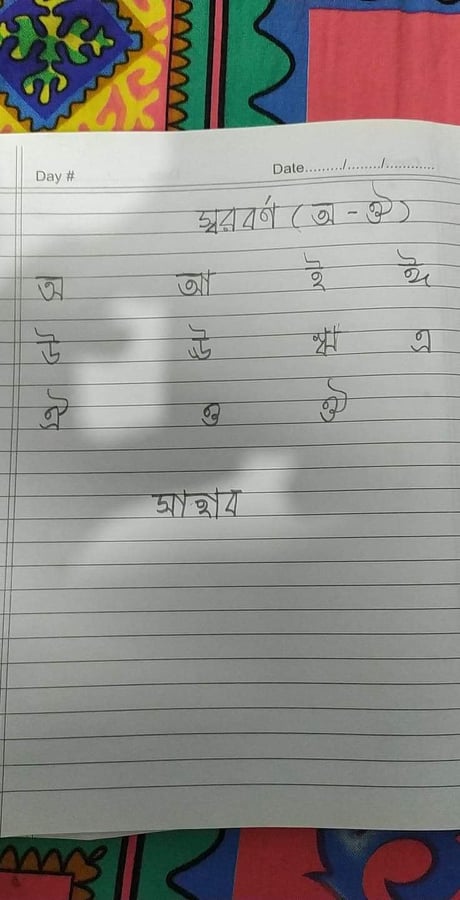 Day #
Date......../......../............
স্বরবর্ণ ( অ - ঔ )
অ আ ই ঈ
উ ঊ ঋ এ
ঐ ও ঔ
সাহাব